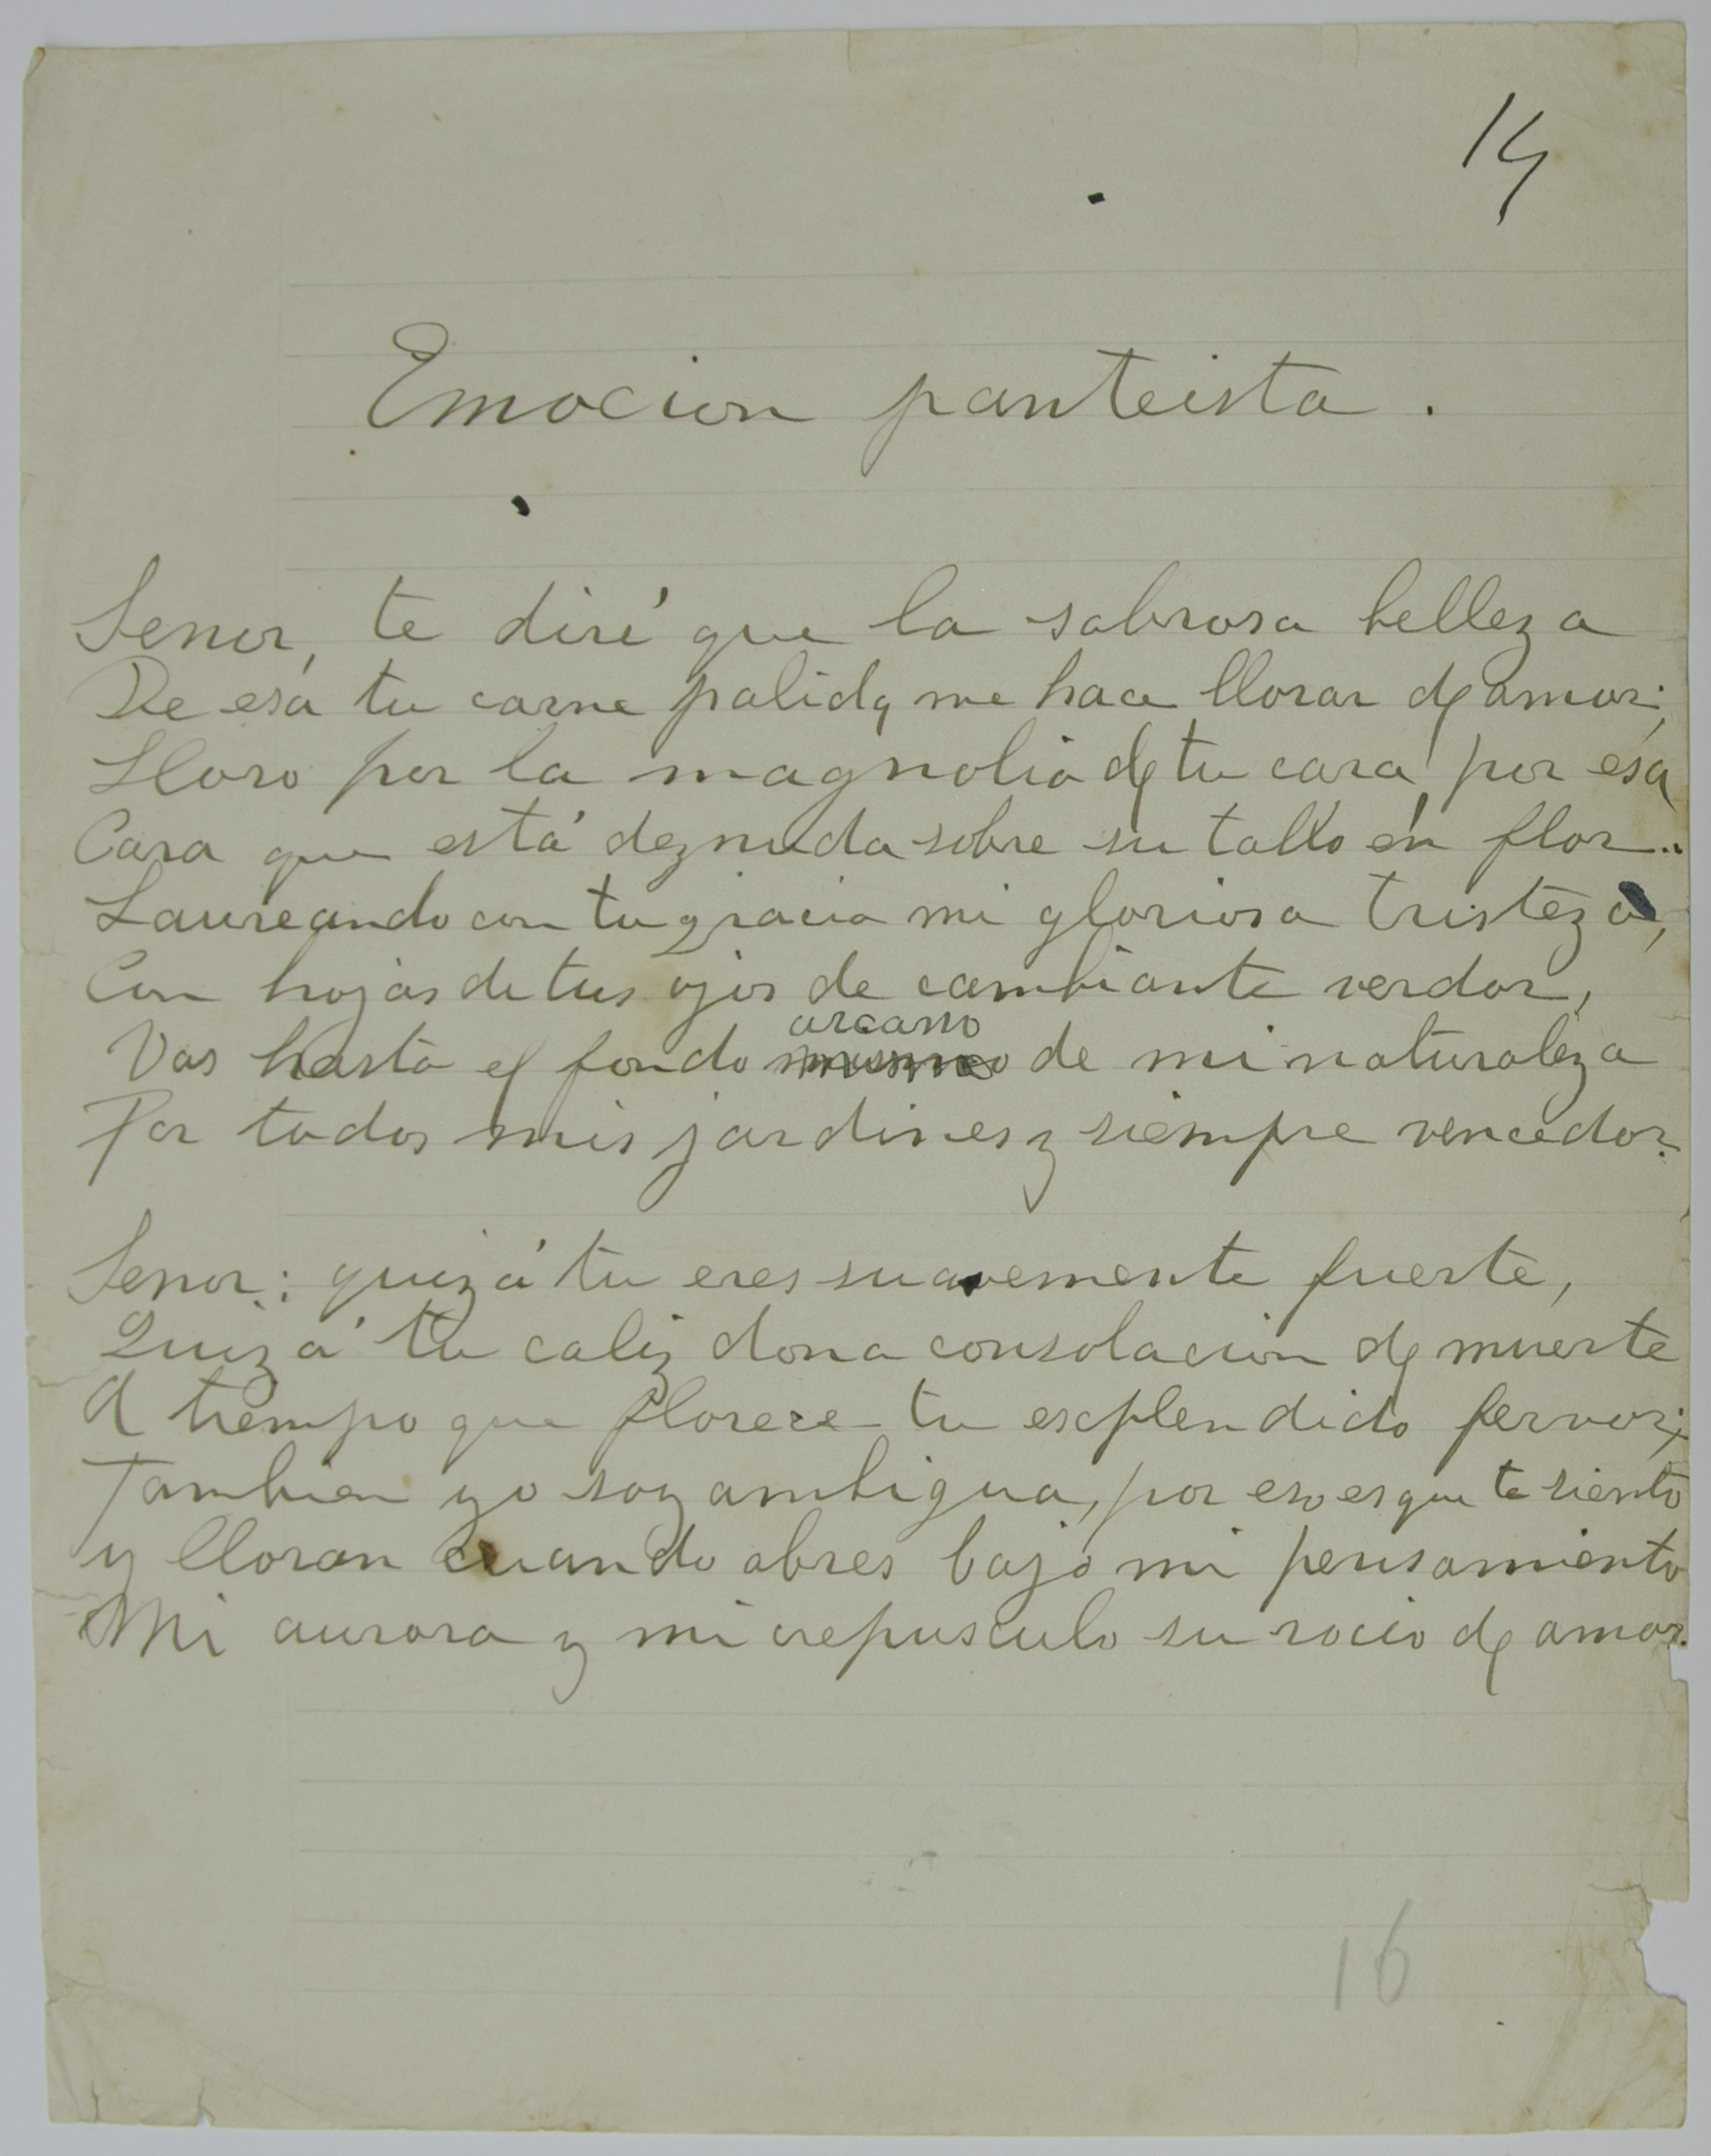 14
Emocion panteista.
Senor, te diré que la sabrosa belleza
De esa tu carne palida, me hace llorar de amor;
Lloro por la magnolia de tu cara, por esa
Cara que está deznuda sobre su tallo en flor..
Laureando con tu gracia mi gloriosa tristeza,
Con hojas de tus ojos de cambiante verdor,
arcano
Vas hasta el fondo mismo de mi naturaleza
Por todos mis jardines y siempre vencedor.
Senor: quizá tu eres suavemente fuerte,
Quizá tu caliz dona consolacion de muerte
A tiempo que florece tu esplendido fervor;
Tambien yo soy ambigua, por eso es que te siento
y lloran cuando abres bajo mi pensamiento
Mi aurora y mi crepusculo su rocio de amor.
16